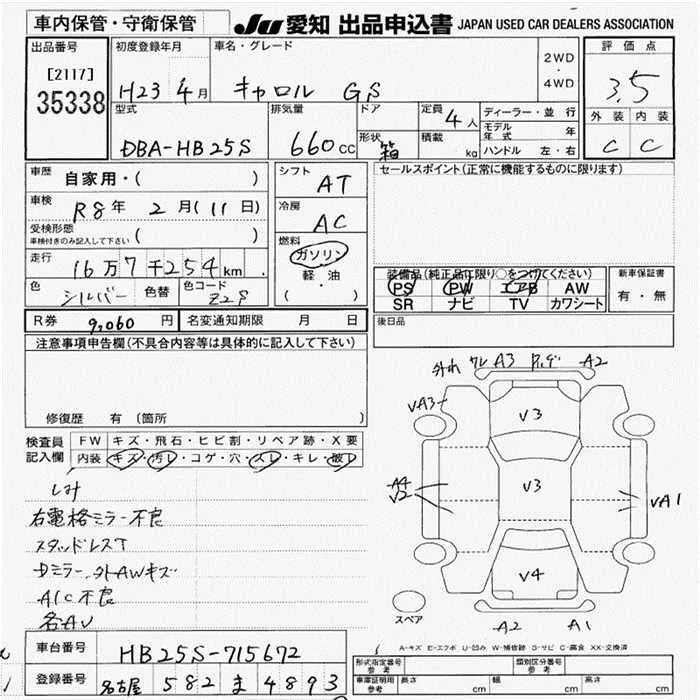 車内保管・守衛保管
JU 愛知 出品申込書 JAPAN USED CAR DEALERS ASSOCIATION
出品番号
[2117]
35338
初度登録年月
H23年4月
車名・グレード
キャロル GS
2WD
・
4WD
評価点
3.5
外装 内装
C C
型式
DBA-HB25S
排気量
660cc
ドア
形状
箱
定員 4人
積載 kg
ディーラー・並行
モデル年式 年
ハンドル 左・右
車歴 自家用・( )
車検 R8年2月(11日)
受検形態
車検付きのみ記入して下さい ( )
走行 16万7千254km
色 シルバー 色替 色コード Z2S
シフト AT
冷房 AC
燃料
ガソリン
軽・油
( )
セールスポイント(正常に機能するものに限ります)
装備品(純正品に限り○をつけてください)
PS PW エアB AW
SR ナビ TV カワシート
新車保証書
有・無
R券 9,060円
名変通知期限 月 日
後日品
注意事項申告欄(不具合内容等は具体的に記入して下さい)
修復歴 有 (箇所 )
検査員記入欄
FW キズ・飛石・ヒビ割・リペア跡・X要
内装 キズ・汚レ・コゲ・穴・スレ・キレ・破レ
シミ
右電格ミラー不良
スタッドレスT
Dミラー、外AWキズ
A/C不良
各AU
外れ ワレ A3 A2
VA3
V3
A4
V2
V3
VA1
V4
A2 A1
スペア
A-キズ E-エクボ U-凹み W-補修跡 S-サビ C-腐食 XX-交換済
車台番号 HB25S-715672
登録番号 名古屋 582 ま 4893
形式指定番号 参考
類別区分番号 参考
車庫証明用 参考 長さ cm 幅 cm 高さ cm